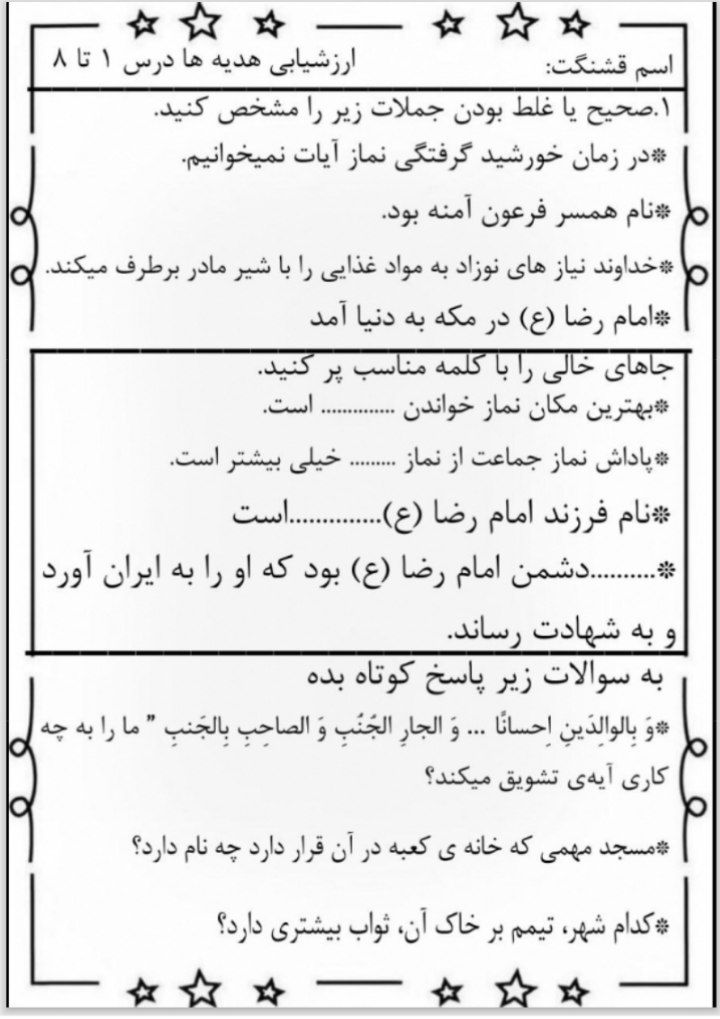 اسم قشنگت: ارزشیابی هدیه ها درس ۱ تا ۸
۱.صحیح یا غلط بودن جملات زیر را مشخص کنید.
*در زمان خورشید گرفتگی نماز آیات نمیخوانیم.
*نام همسر فرعون آمنه بود.
*خداوند نیاز های نوزاد به مواد غذایی را با شیر مادر برطرف میکند.
*امام رضا (ع) در مکه به دنیا آمد
جاهای خالی را با کلمه مناسب پر کنید.
*بهترین مکان نماز خواندن .............. است.
*پاداش نماز جماعت از نماز ......... خیلی بیشتر است.
*نام فرزند امام رضا (ع)..............است
*..........دشمن امام رضا (ع) بود که او را به ایران آورد
و به شهادت رساند.
به سوالات زیر پاسخ کوتاه بده
*وَ بِالوالِدَینِ اِحسانًا ... وَ الجارِ الجُنُبِ وَ الصاحِبِ بِالجَنبِ " ما را به چه
کاری آیه‌ی تشویق میکند؟
*مسجد مهمی که خانه ی کعبه در آن قرار دارد چه نام دارد؟
*کدام شهر، تیمم بر خاک آن، ثواب بیشتری دارد؟